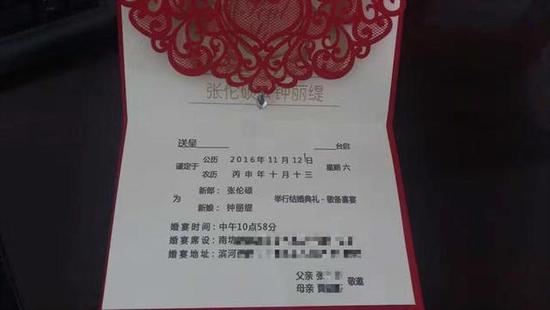 张伦硕 钟丽缇
送呈 台启
谨定于 公历 2016年11月12日 星期 六
农历 丙申年十月十三
为 新郎: 张伦硕 举行结婚典礼-敬备喜宴
新娘: 钟丽缇
婚宴时间:中午10点58分
婚宴席设:南坊
婚宴地址:滨河
父亲 张
母亲 敬邀